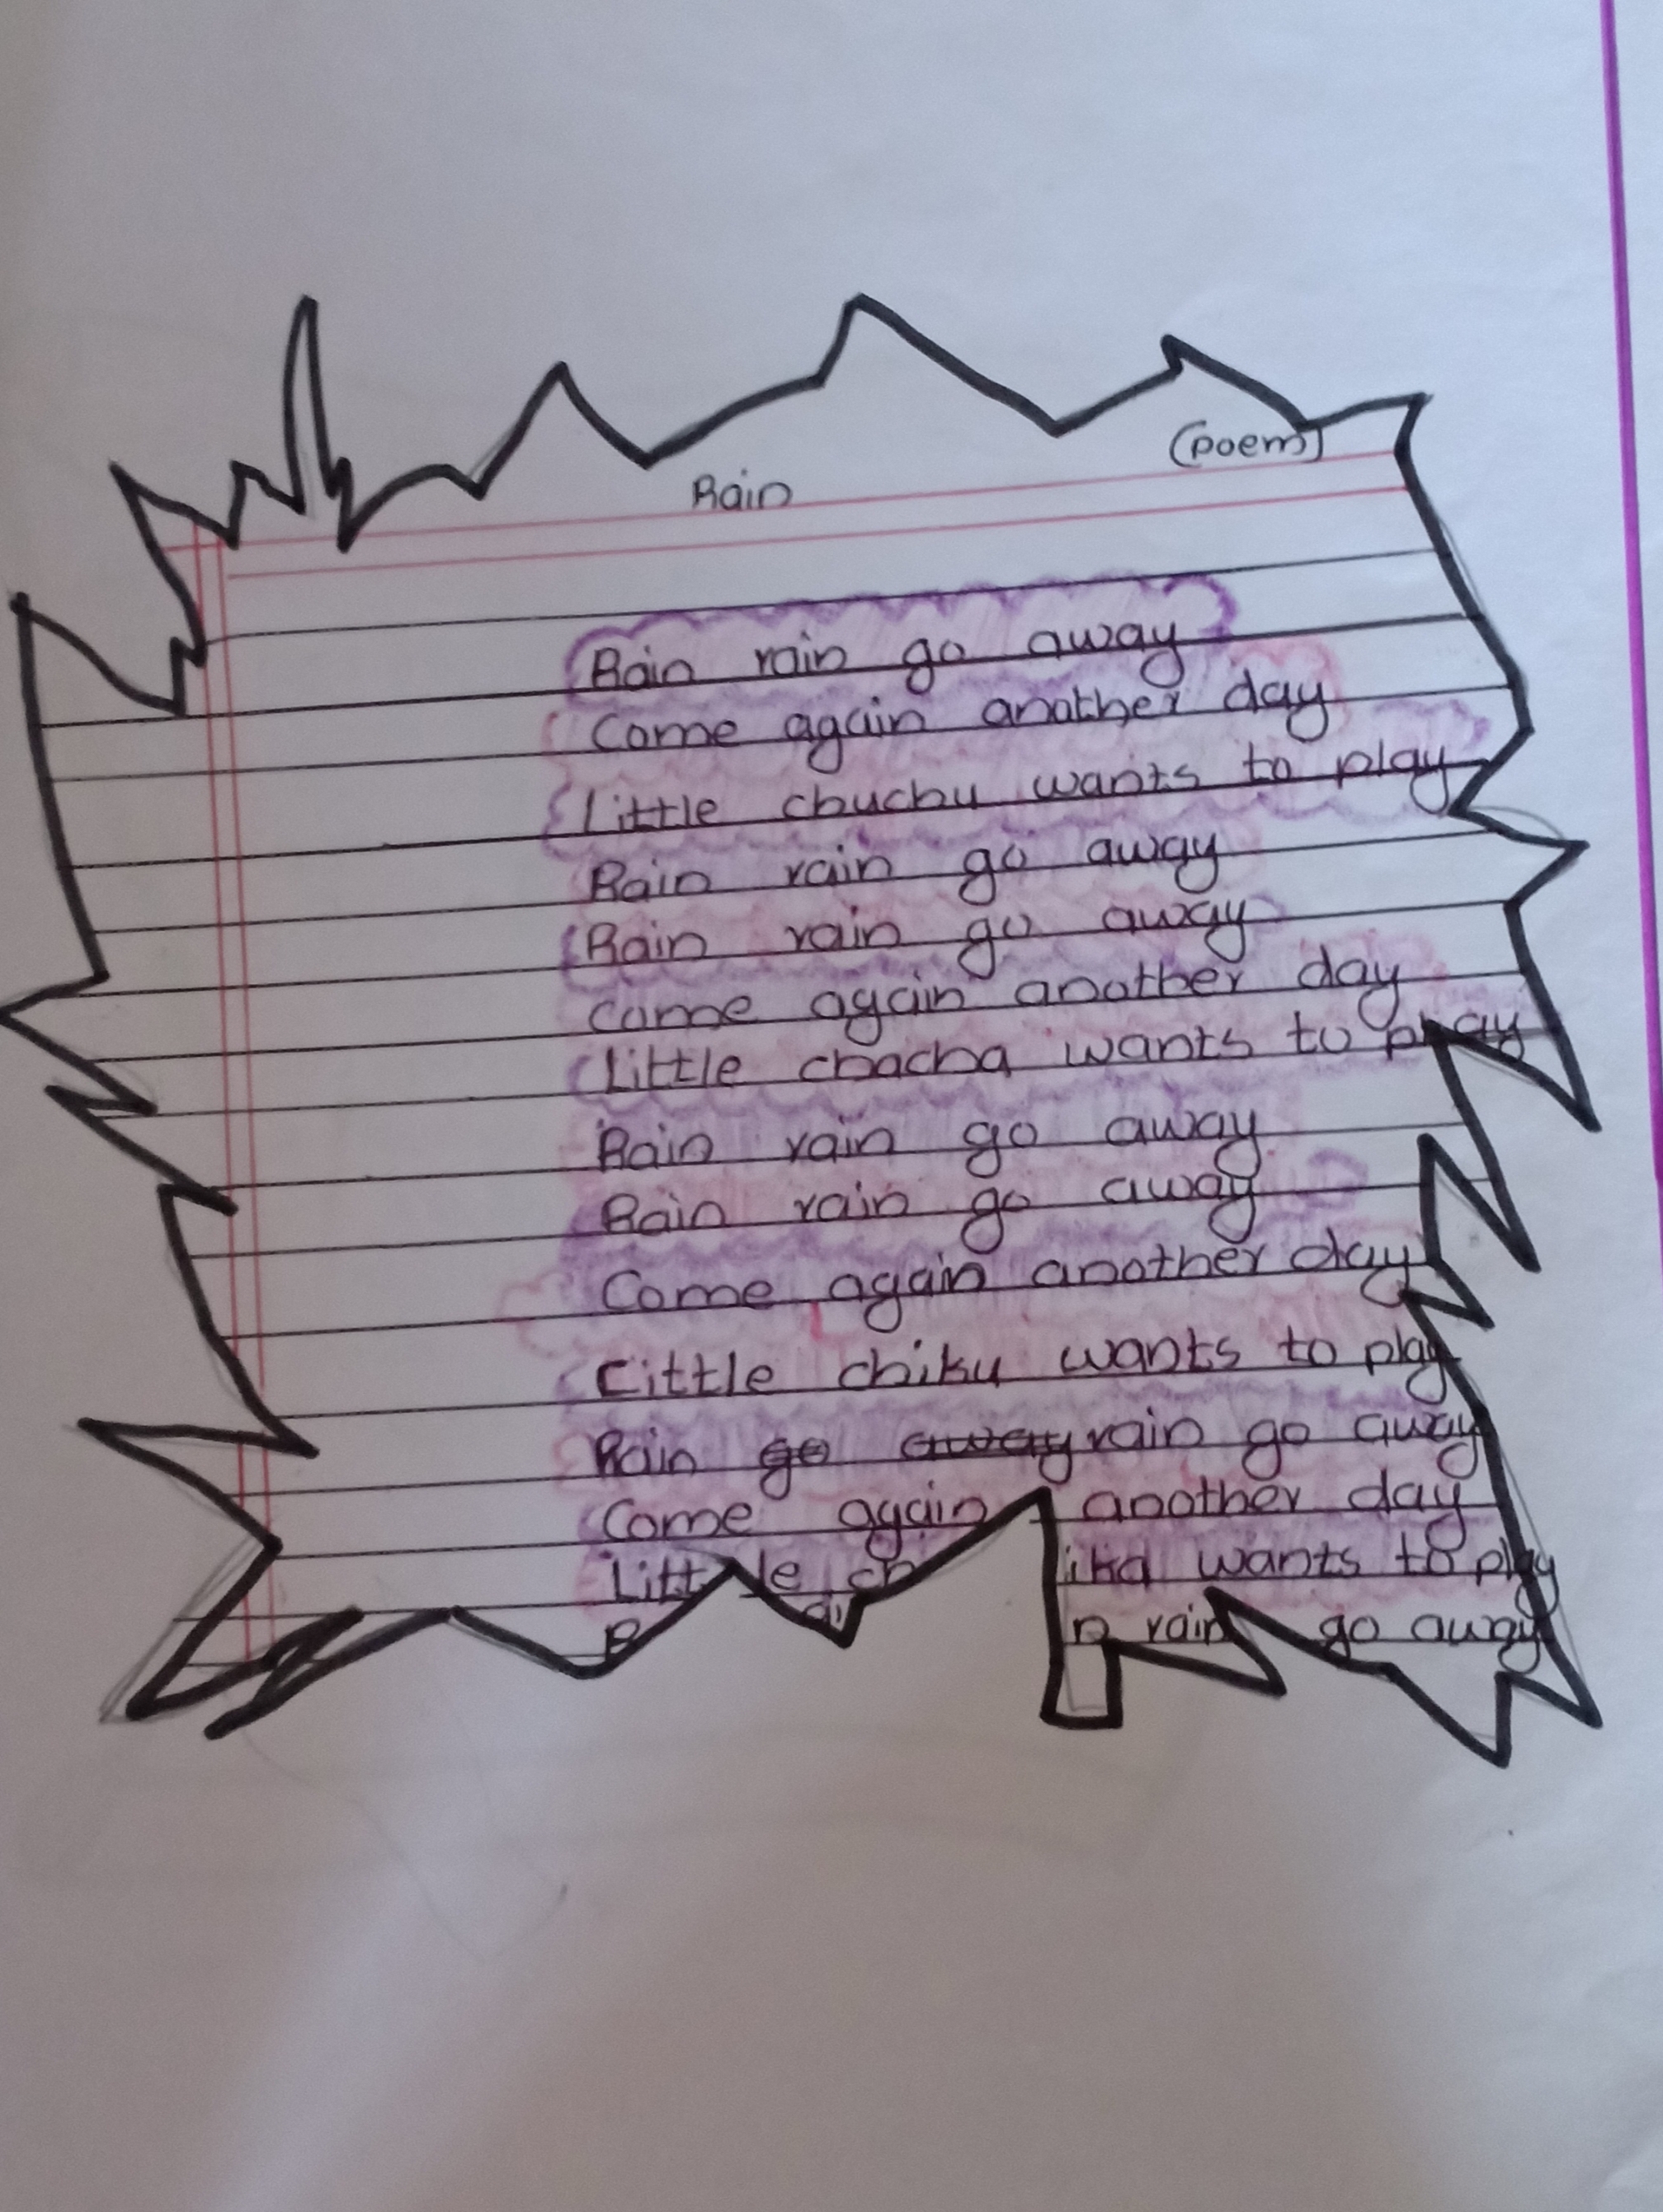 (poem)
Rain
Rain rain go away
Come again another day
Little chuchu wants to play
Rain rain go away
Rain rain go away
Come again another day
Little chacha wants to play
Rain rain go away
Rain rain go away
Come again another day
Little chiku wants to play
Rain go away rain go away
Come again another day
Little ch ika wants to play
R ai n rain go away